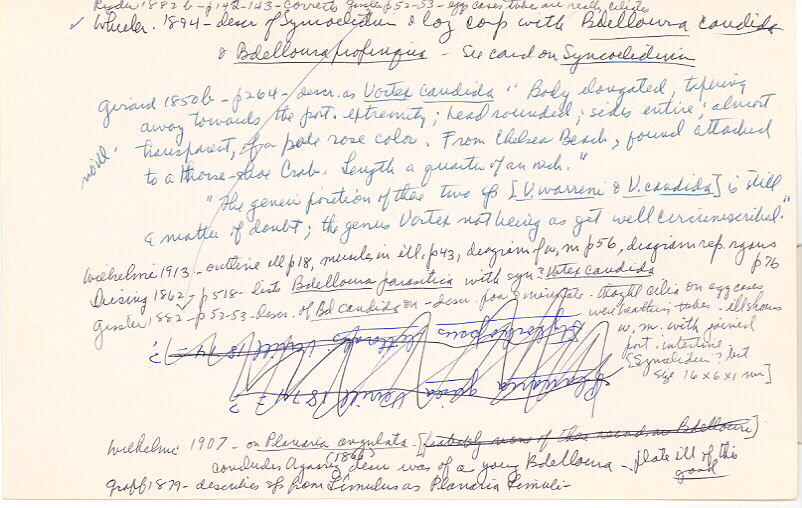 Ryder 1882b - p142-143 - corrects Gissler p52-53 - egg cases tubes are really ciliates
✓ Wheeler. 1894 - descr of Syncoelidium & log comp with Bdelloura candida
& Bdelloura propinqua - See card on Syncoelidium
Girard 1850b - p264 - descr. as Vortex candida " Body elongated, tapering
away towards the post. extremity; head rounded; sides entire, almost
transparent, of a pale rose color. From Chelsea Beach, found attached
no ill.
to a Horse-shoe Crab. Length a quarter of an inch."
"The generic position of these two sp [V. warreni & V. candida] is still
a matter of doubt; the genus Vortex not being as yet well circumscribed."
Wilhelmi 1913 - outline ill p18, muscles in ill. p43, diagram of w.m p56, diagram rep. organs
p76
Diesing 1862 - p518 - lists Bdelloura parasitica with syn? Votex candida
Gissler 1882 - p52-53 - descr. of Bd candida on - thought cilia on egg cases
were breathing tubes - ill shows
w.m. with joined
post. intestine
[Syncoelidium? but
size 16 x 6 x 1 mm]
Planaria grisea Verrill 1874?
Verrill 1874 - ?
Wilhelmi 1907 - on Planaria angulata. [Probably none of these records are Bdelloura]
concludes Agassiz (1866) descr was of a young Bdelloura - plate ill of this
good
Graff 1879 - describes sp from Limulus as Planaria Limuli -